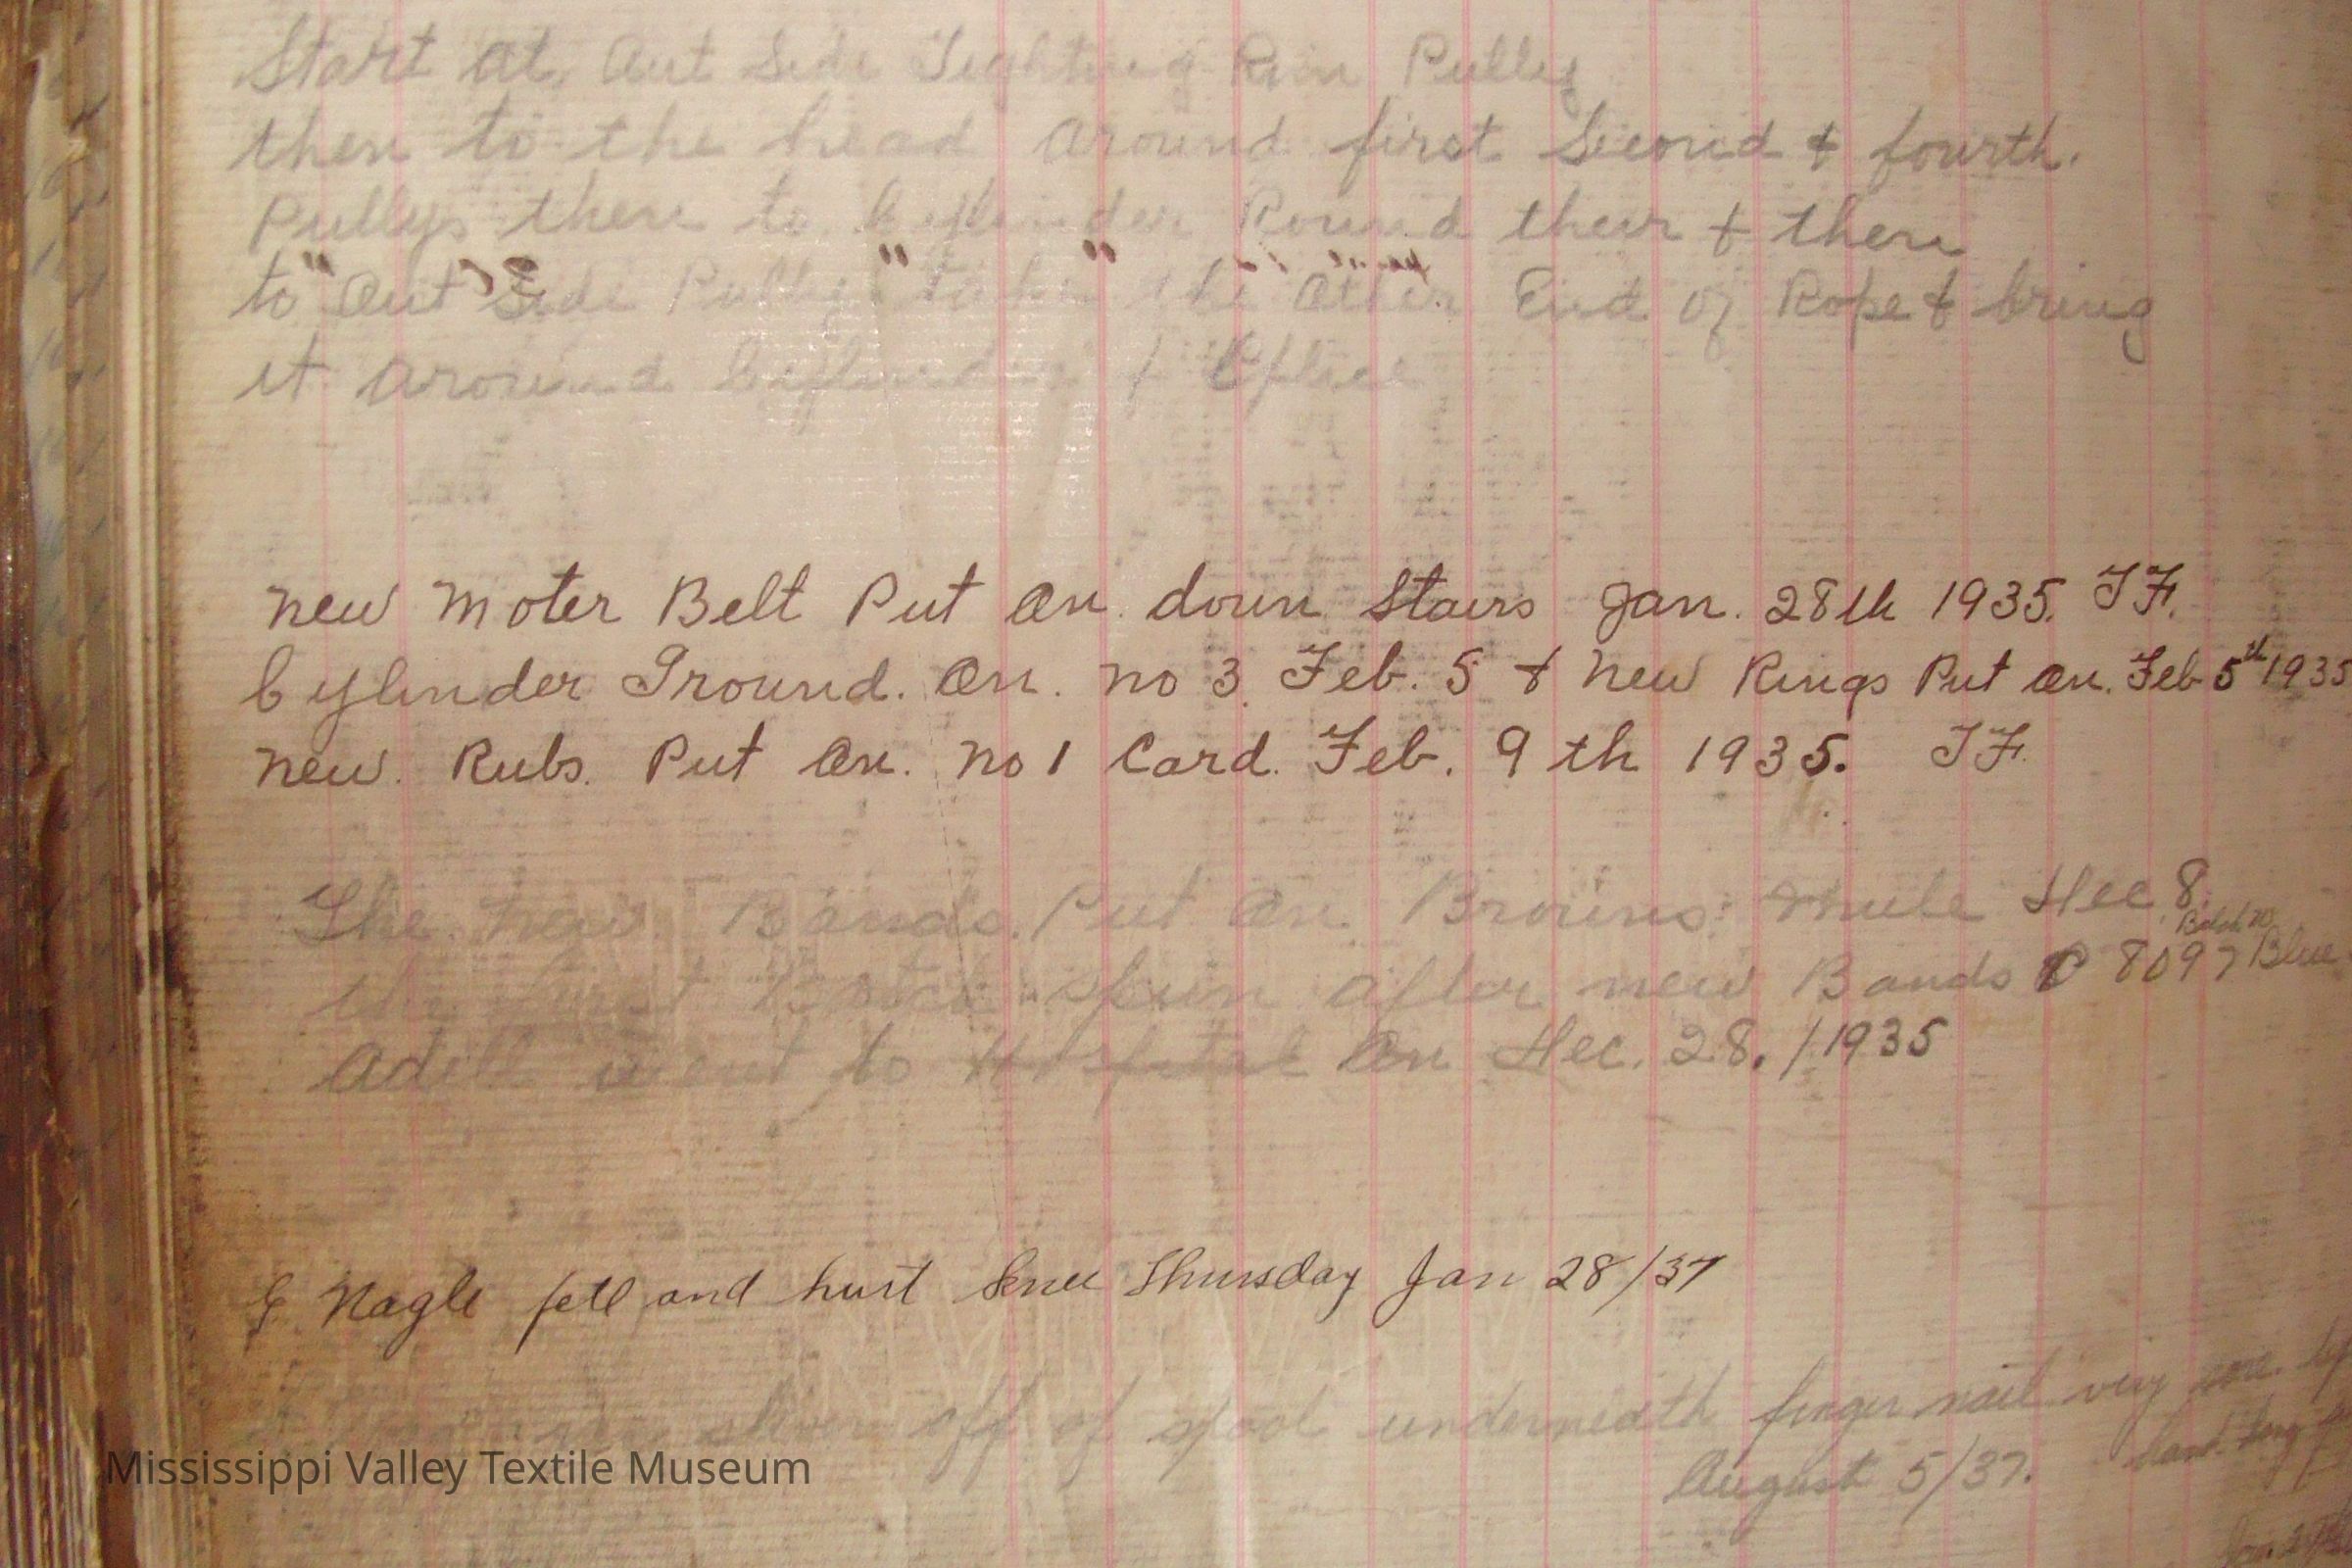 Start at Out Side Tightning Rim Pulley
then to the head around first Second & fourth.
Pullys then to Cylinder Round their & then
to Out Side Pulley take the Other End of Rope & bring
it around Cylinder & Splice
New Moter Belt Put On down Stairs Jan. 28th 1935. TF.
Cylinder Ground. On. No 3 Feb. 5 & New Rings Put On. Feb 5th 1935
New. Rubs. Put On. No 1 Card. Feb. 9th 1935. TF.
The New Bands Put On Browns Mule Dec 8.
the first Batch spun after new Bands 8097 Blue
Batch no
Adell went to Hospital On Dec. 28. / 1935
G. Nagle fell and hurt knee Thursday Jan 28/37
sliver off of spool underneath finger nail very sore
August 5/37.
Mississippi Valley Textile Museum